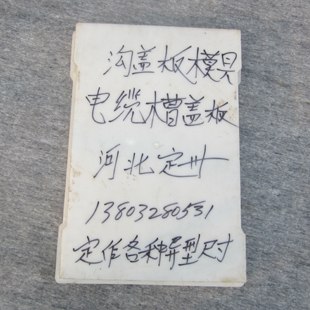 沟盖板模具
电缆槽盖板
河北定州
13803280531
定作各种异型尺寸